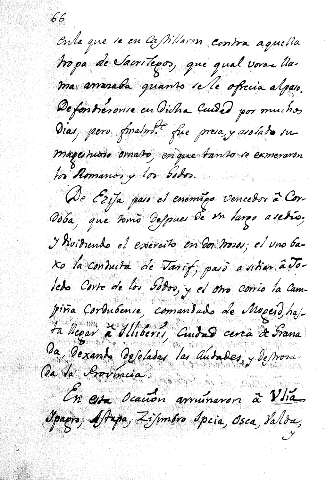 66
en la que se encastillaron contra aquella
tropa de Sacrilegos, que qual voraz lla-
ma arrasaba quanto se le ofrecia al paso.
Defendieronse en dicha Ciudad por muchos
dias, pero finalmte. fue presa, y asolado su
magestuoso ornato, en que tanto se esmeraron
los Romanos y los Godos.
De Ezija paso el enemigo vencedor à Cor-
doba, que tomò despues de un largo asedio,
y dividiendo el exercito en dos trosos; el uno ba-
xo la conduita de Tarif, pasò a sitiar à To-
ledo Corte de los Godos, y el otro corrio la Cam-
piña Cordubense, comandado de Mogeid, has-
ta llegar à Iliberis, Ciudad cerca de Grana-
da, dexando desoladas las Ciudades, y destroza-
da la Provincia.
En esta ocasion arruinaron à Ulia
Ipagro, Astapa, Zisimbro Ipcia, Osca, Valda,
y